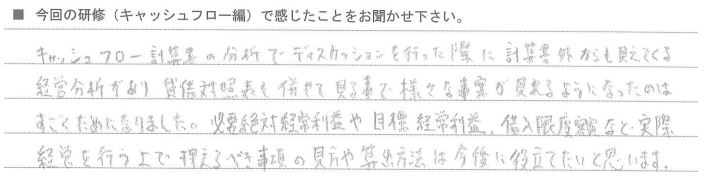 ■ 今回の研修（キャッシュフロー編）で感じたことをお聞かせ下さい。
キャッシュフロー計算書の分析でディスカッションを行った際に計算書外からも見えてくる
経営分析があり貸借対照表も併せて見る事で様々な事実が見えるようになったのは
すごくためになりました。必要絶対経常利益や目標経常利益、借入限度額など実際
経営を行う上で押えるべき事項の見方や算出方法は今後に役立てたいと思います。